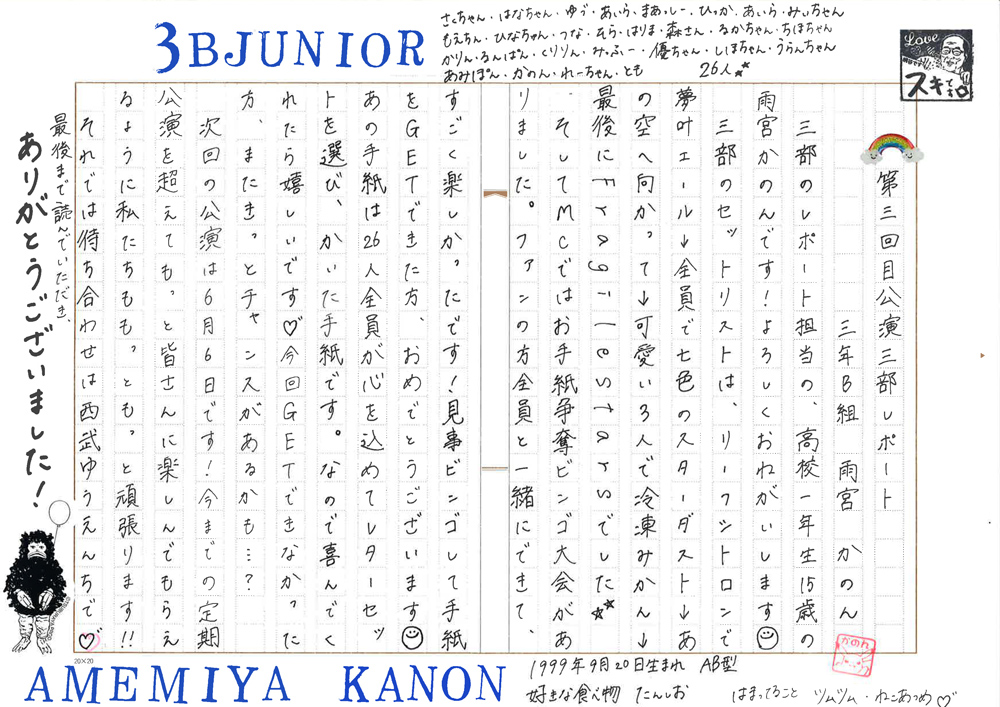 3BJUNIOR
さくちゃん・はなちゃん・ゆづ・あいら・まあッしー・ひっか・あいら・みぃちゃん
もえちん・ひなちゅん・うな・そら・はりま・森さん・るかちゃん・ちほちゃん
かりん・るんぱん・くりりん・みっふー・優ちゃん・しほちゃん・うらんちゃん
あみぽん・かのん・れーちゃん・とも 26人
Love
スキすぎロ
第三回目公演三部レポート
三年B組 雨宮 かのん
三部のレポート担当の、高校一年生15歳の
雨宮かのんです!よろしくおねがいします☺
三部のセットリストは、リーフシントロンで
夢叶エール↓全員で七色のスターダスト↓あ
の空へ向かって↓可愛い3人で冷凍みかん↓
最後にFragilestarsでした★★
そしてMCではお手紙争奪ビンゴ大会があ
りました。ファンの方全員と一緒にできて、
すごく楽しかったです!見事ビンゴして手紙
をGETできた方、おめでとうございます☺
あの手紙は26人全員が心を込めてレターセッ
トを選び、かいた手紙です。なので喜んでく
れたら嬉しいです♡今回GETできなかった
方、またきっとチャンスがあるかも…?
次回の公演は6月6日です!今までの定期
公演を超えてもっと皆さんに楽しんでもらえ
るように私たちももっともっと頑張ります!!
それでは待ち合わせは西武ゆうえんちで♡
最後まで読んでいただき、
ありがとうございました!
20×20
かのん
AMEMIYA KANON
1999年9月20日生まれ AB型
好きな食べ物 たんしお
はまってること ツムツム・ねこあつめ♡